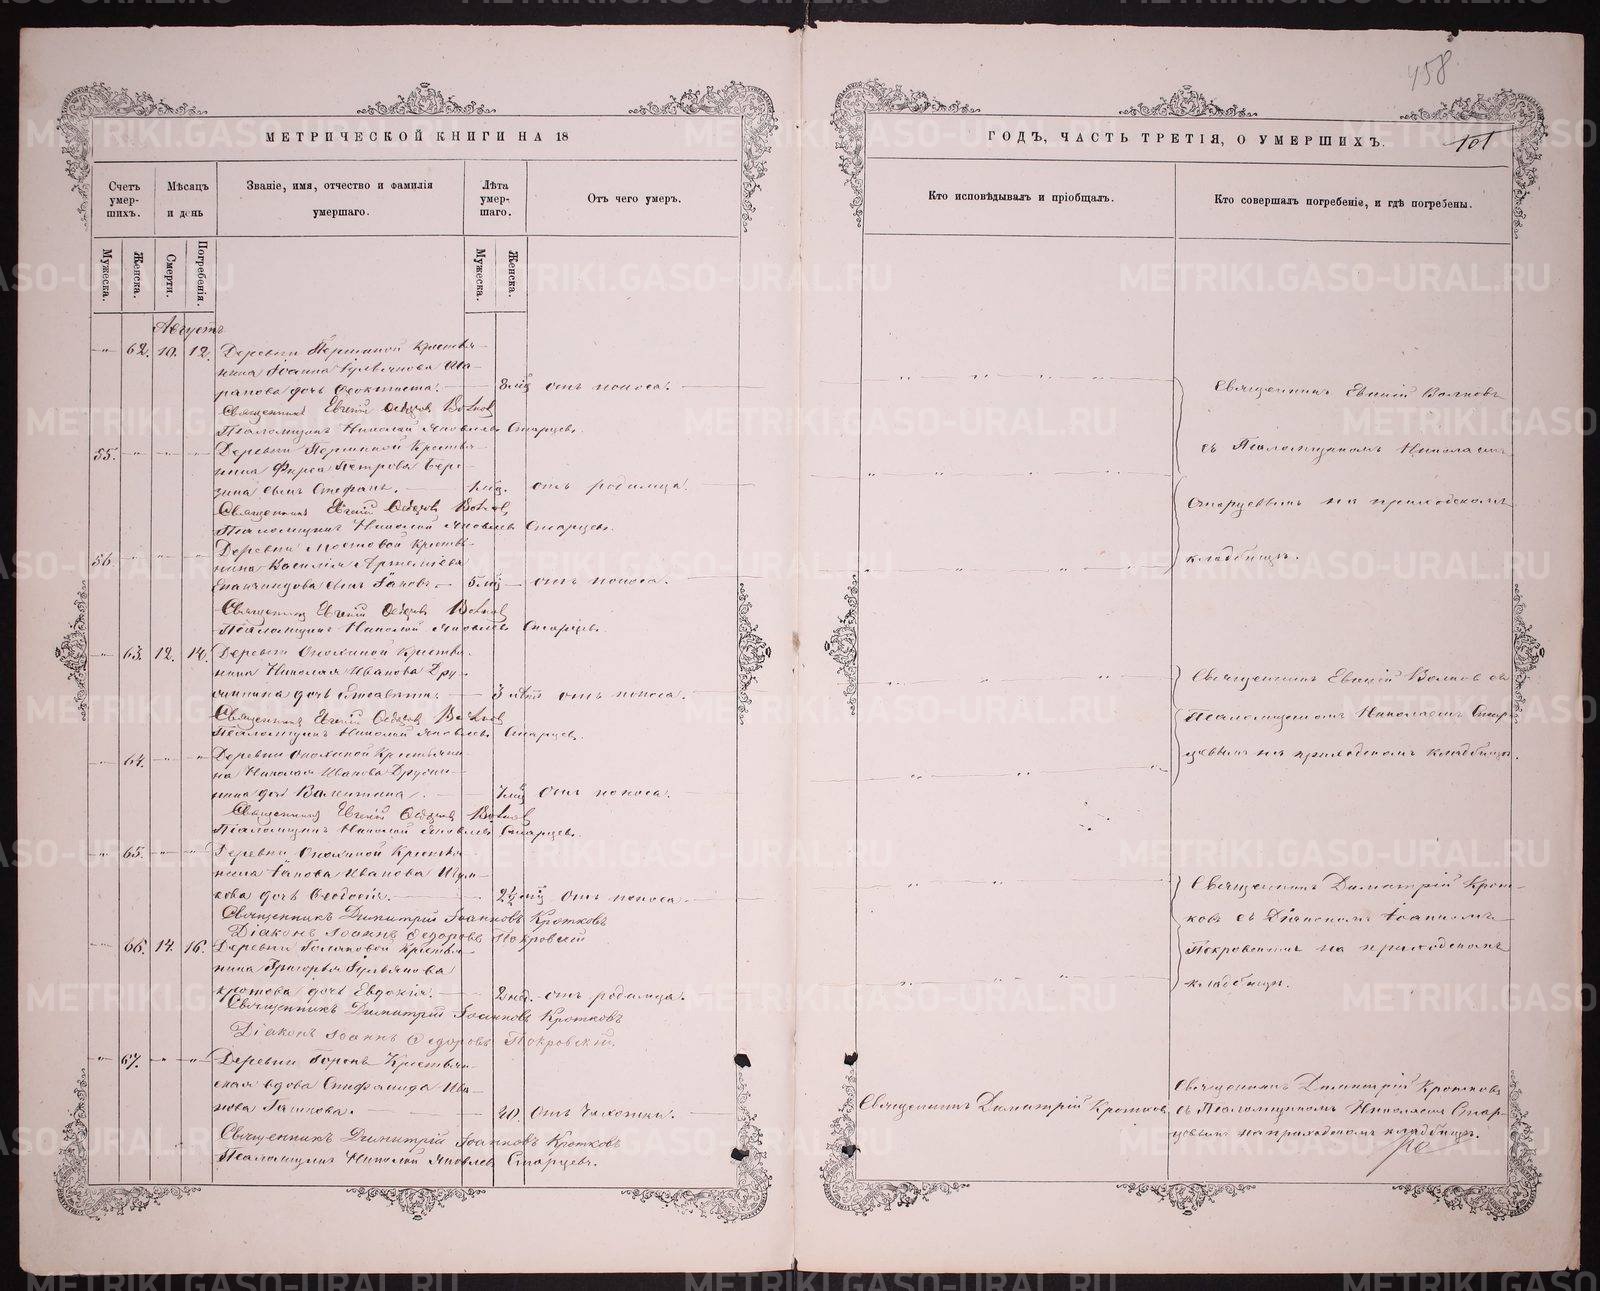 458
МЕТРИЧЕСКОЙ КНИГИ НА 18
ГОДЪ, ЧАСТЬ ТРЕТІЯ, О УМЕРШИХЪ.
101
Счетъ умер-шихъ.
Мѣсяцъ и день
Званіе, имя, отчество и фамилія
умершаго.
Лѣта умер-шаго.
Отъ чего умеръ.
Кто исповѣдывалъ и пріобщалъ.
Кто совершалъ погребеніе, и гдѣ погребены.
Мужеска.
Женска.
Смерти.
Погребенія.
Мужеска.
Женска.
Августъ
62. 10. 12. Деревни Першиной крестья-
нина Іоанна
дочь Ѳеоктиста. 8 мѣс отъ поноса.
Священникъ Евгеній Волковъ
Псаломщикъ Николай Яковлевъ Старцевъ.
Священникъ Евгеній Волковъ
съ Псаломщикомъ Николаемъ
Старцевымъ на приходскомъ
кладбищѣ.
55. Деревни Першиной Крестья-
нина Фирса Петрова Бере-
зина сынъ Стефанъ. 1 мѣс. отъ родимца.
Священникъ Евгеній Волковъ
Псаломщикъ Николай Яковлевъ Старцевъ.
56. Деревни Мостовой крестья-
нина Василія Артемьева
сынъ Іаковъ 5 мѣс отъ поноса.
Священникъ Евгеній Волковъ
Псаломщикъ Николай Яковлевъ Старцевъ.
63. 12. 14. Деревни Крестья-
нина Николая Иванова Дру-
жинина дочь Елисавета. 3 лѣт отъ поноса.
Священникъ Евгеній Волковъ
Псаломщикъ Николай Яковлевъ Старцевъ.
Священникъ Евгеній Волковъ съ
Псаломщикомъ Николаемъ Стар-
цевымъ на приходскомъ кладбищѣ.
64. Деревни Крестьяни-
на Николая Иванова Дружи-
нина дочь Валентина. 7 мѣс отъ поноса.
Священникъ Евгеній Волковъ
Псаломщикъ Николай Яковлевъ Старцевъ.
65. Деревни Крестья-
нина Іакова Иванова
дочь Ѳеодосія. 2½ мѣс отъ поноса.
Священникъ Димитрій Іоанновъ Кротковъ
Діаконъ Іоаннъ Ѳедоровъ Покровскій
Священникъ Димитрій Крот-
ковъ съ Діакономъ Іоанномъ
Покровскимъ на приходскомъ
кладбищѣ.
66. 14. 16. Деревни крестья-
нина Григорья
дочь Евдокія. 2 нед. отъ родимца.
Священникъ Димитрій Іоанновъ Кротковъ
Діаконъ Іоаннъ Ѳедоровъ Покровскій.
67. Деревни Крестьян-
ская вдова Стефанида Ива-
нова 40. отъ чахотки.
Священникъ Димитрій Кротковъ
Священникъ Димитрій Іоанновъ Кротковъ
Псаломщикъ Николай Яковлевъ Старцевъ.
Священникъ Димитрій Кротковъ
съ Псаломщикомъ Николаемъ Стар-
цевымъ на приходскомъ кладбищѣ.
METRIKI.GASO-URAL.RU